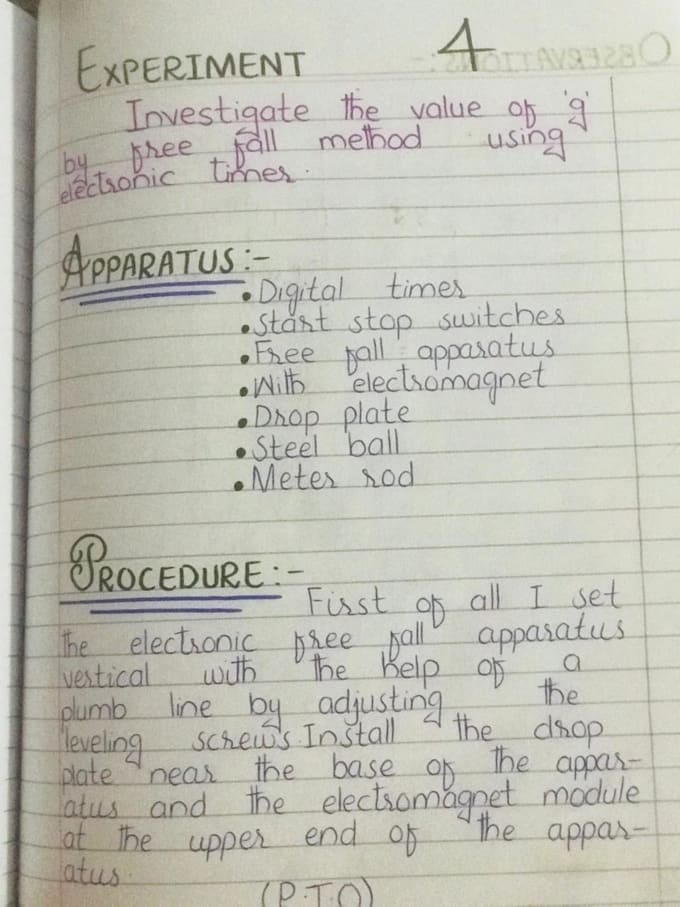 EXPERIMENT 4
Investigate the value of 'g'
by free fall method using
electronic timer.
APPARATUS:-
• Digital timer
• Start stop switches
• Free fall apparatus
• With electromagnet
• Drop plate
• Steel ball
• Meter rod
PROCEDURE:-
First of all I set
the electronic free fall apparatus
vertical with the help of a
plumb line by adjusting the
leveling screws. Install the drop
plate near the base of the appar-
atus and the electromagnet module
at the upper end of the appar-
atus.
(P.T.O)
OBSERVATIONS:-